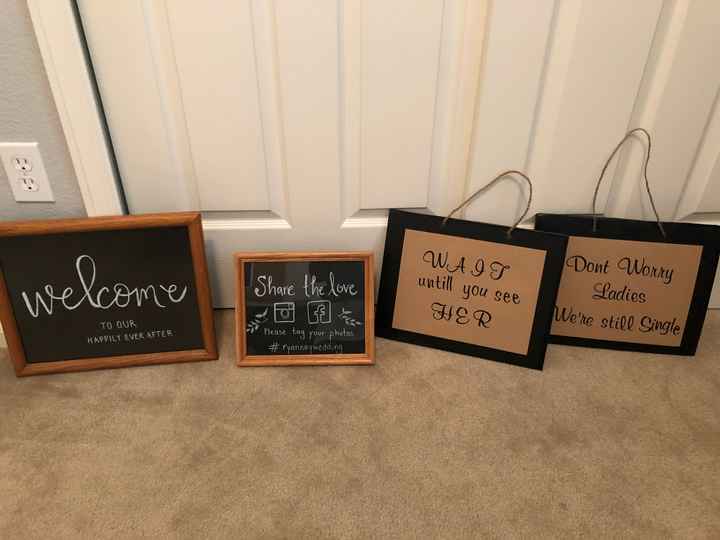 welcome
TO OUR
HAPPILY EVER AFTER
Share the love
Please tag your photos
WAIT
untill you see
HER
Dont Worry
Ladies
We're still Single